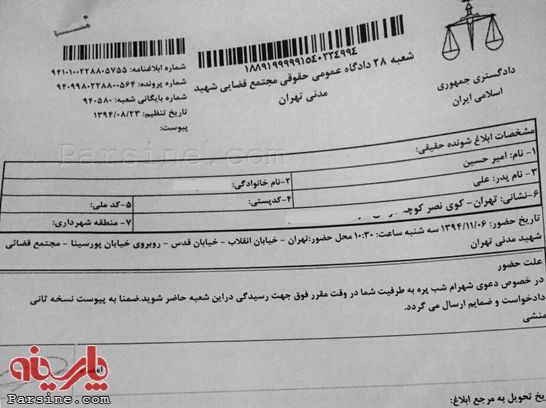 دادگستری جمهوری
اسلامی ایران
۱۸۸۹۱۹۹۹۹۹۱۵۴۰۲۲۴۹۹۴
شعبه ۲۸ دادگاه عمومی حقوقی مجتمع قضایی شهید
مدنی تهران
شماره ابلاغنامه: ۹۴۱۰۱۰۰۲۲۸۸۰۵۷۵۵
شماره پرونده: ۹۴۰۹۹۸۰۲۲۸۸۰۰۵۶۴
شماره بایگانی شعبه: ۹۴۰۵۸۰
تاریخ تنظیم: ۱۳۹۴/۰۸/۲۳
پیوست:
Parsine.com
مشخصات ابلاغ شونده حقیقی:
۱-نام: امیر حسین
۲-نام خانوادگی:
۳-نام پدر: علی
۴-کدپستی:
۵-کد ملی:
۶-نشانی: تهران- کوی نصر کوچه
۷- منطقه شهرداری:
تاریخ حضور: ۱۳۹۴/۱۱/۰۶ سه شنبه ساعت: ۱۰:۳۰ محل حضور:تهران - خیابان انقلاب - خیابان قدس - روبروی خیابان پورسینا - مجتمع قضائی
شهید مدنی تهران
علت حضور
در خصوص دعوی شهرام شب پره به طرفیت شما در وقت مقرر فوق جهت رسیدگی دراین شعبه حاضر شوید.ضمنا به پیوست نسخه ثانی
دادخواست و ضمایم ارسال می گردد.
منشی
امضا
یخ تحویل به مرجع ابلاغ:
پارسینه
Parsine.com